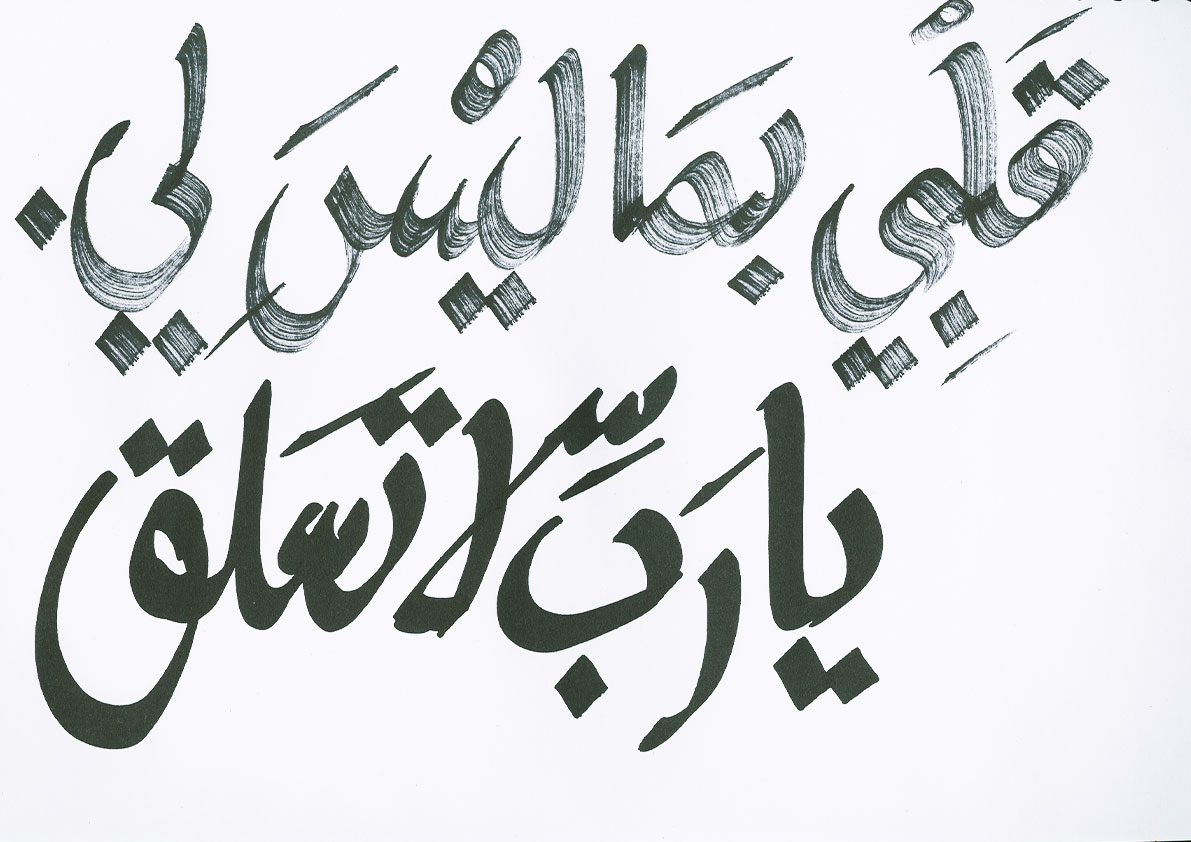 قَلْبِي بِمَا لَيْسَ لِي.
يا رَبِّ لا تَعلق